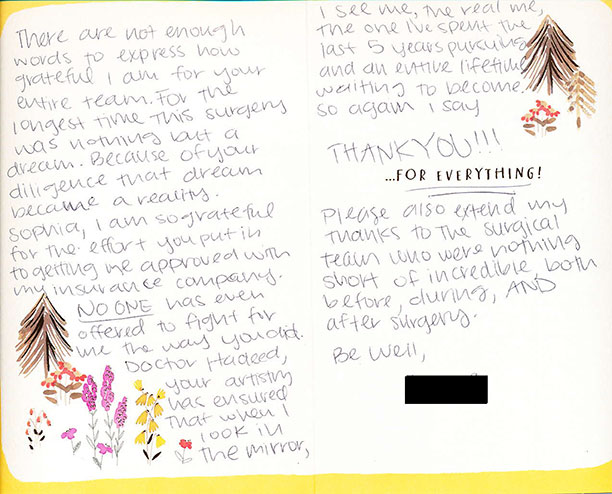 There are not enough
words to express how
grateful I am for your
entire team. For the
longest time this surgery
was nothing but a
dream. Because of your
diligence that dream
became a reality.
Sophia, I am so grateful
for the effort you put in
to getting me approved with
my insurance company.
NO ONE has even
offered to fight for
me the way you did.
Doctor Hadeed,
your artistry
has ensured
that when I
look in
the mirror,
I see me, the real me,
the one I've spent the
last 5 years pursuing
and an entire lifetime
waiting to become.
So again I say
THANK YOU!!!
...FOR EVERYTHING!
Please also extend my
thanks to the surgical
team who were nothing
short of incredible both
before, during, AND
after surgery.
Be Well,